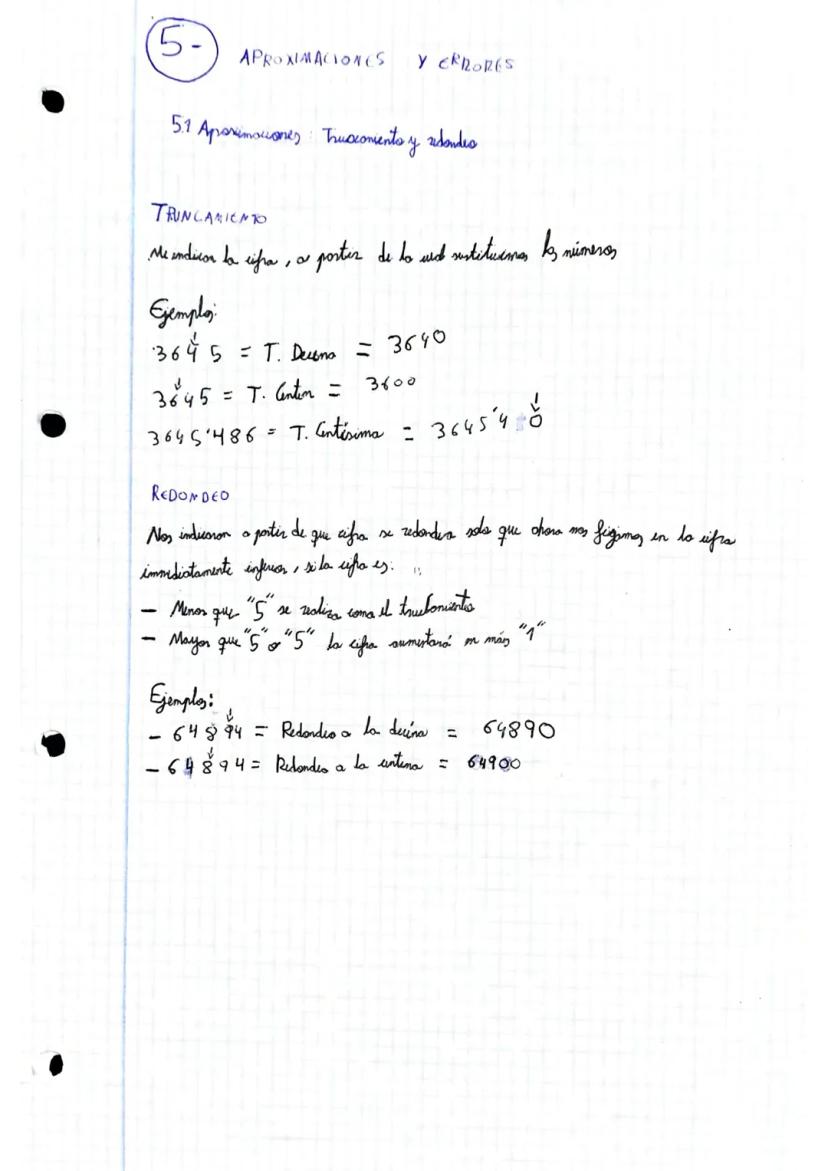 5-
APROXIMACIONES Y ERRORES
5.1 Aproximaciones: Truncamiento y redondeo
TRUNCAMIENTO
Me indican la cifra, a partir de la cual sustituimos los números
Ejemplos:
3645 = T. Decena = 3640
3645 = T. Centen = 3600
3645'486 = T. Centésima = 3645'4 0
REDONDEO
Nos indicaran a partir de que cifra se redondea solo que ahora nos fijamos en la cifra
inmediatamente inferior, si la cifra es:
- Menor que "5" se realiza como el truncamiento
- Mayor que "5" o "5" la cifra aumentará en más "1"
Ejemplos:
- 64894 = Redondeo a la decina = 64890
- 64894 = Redondeo a la centena = 64900